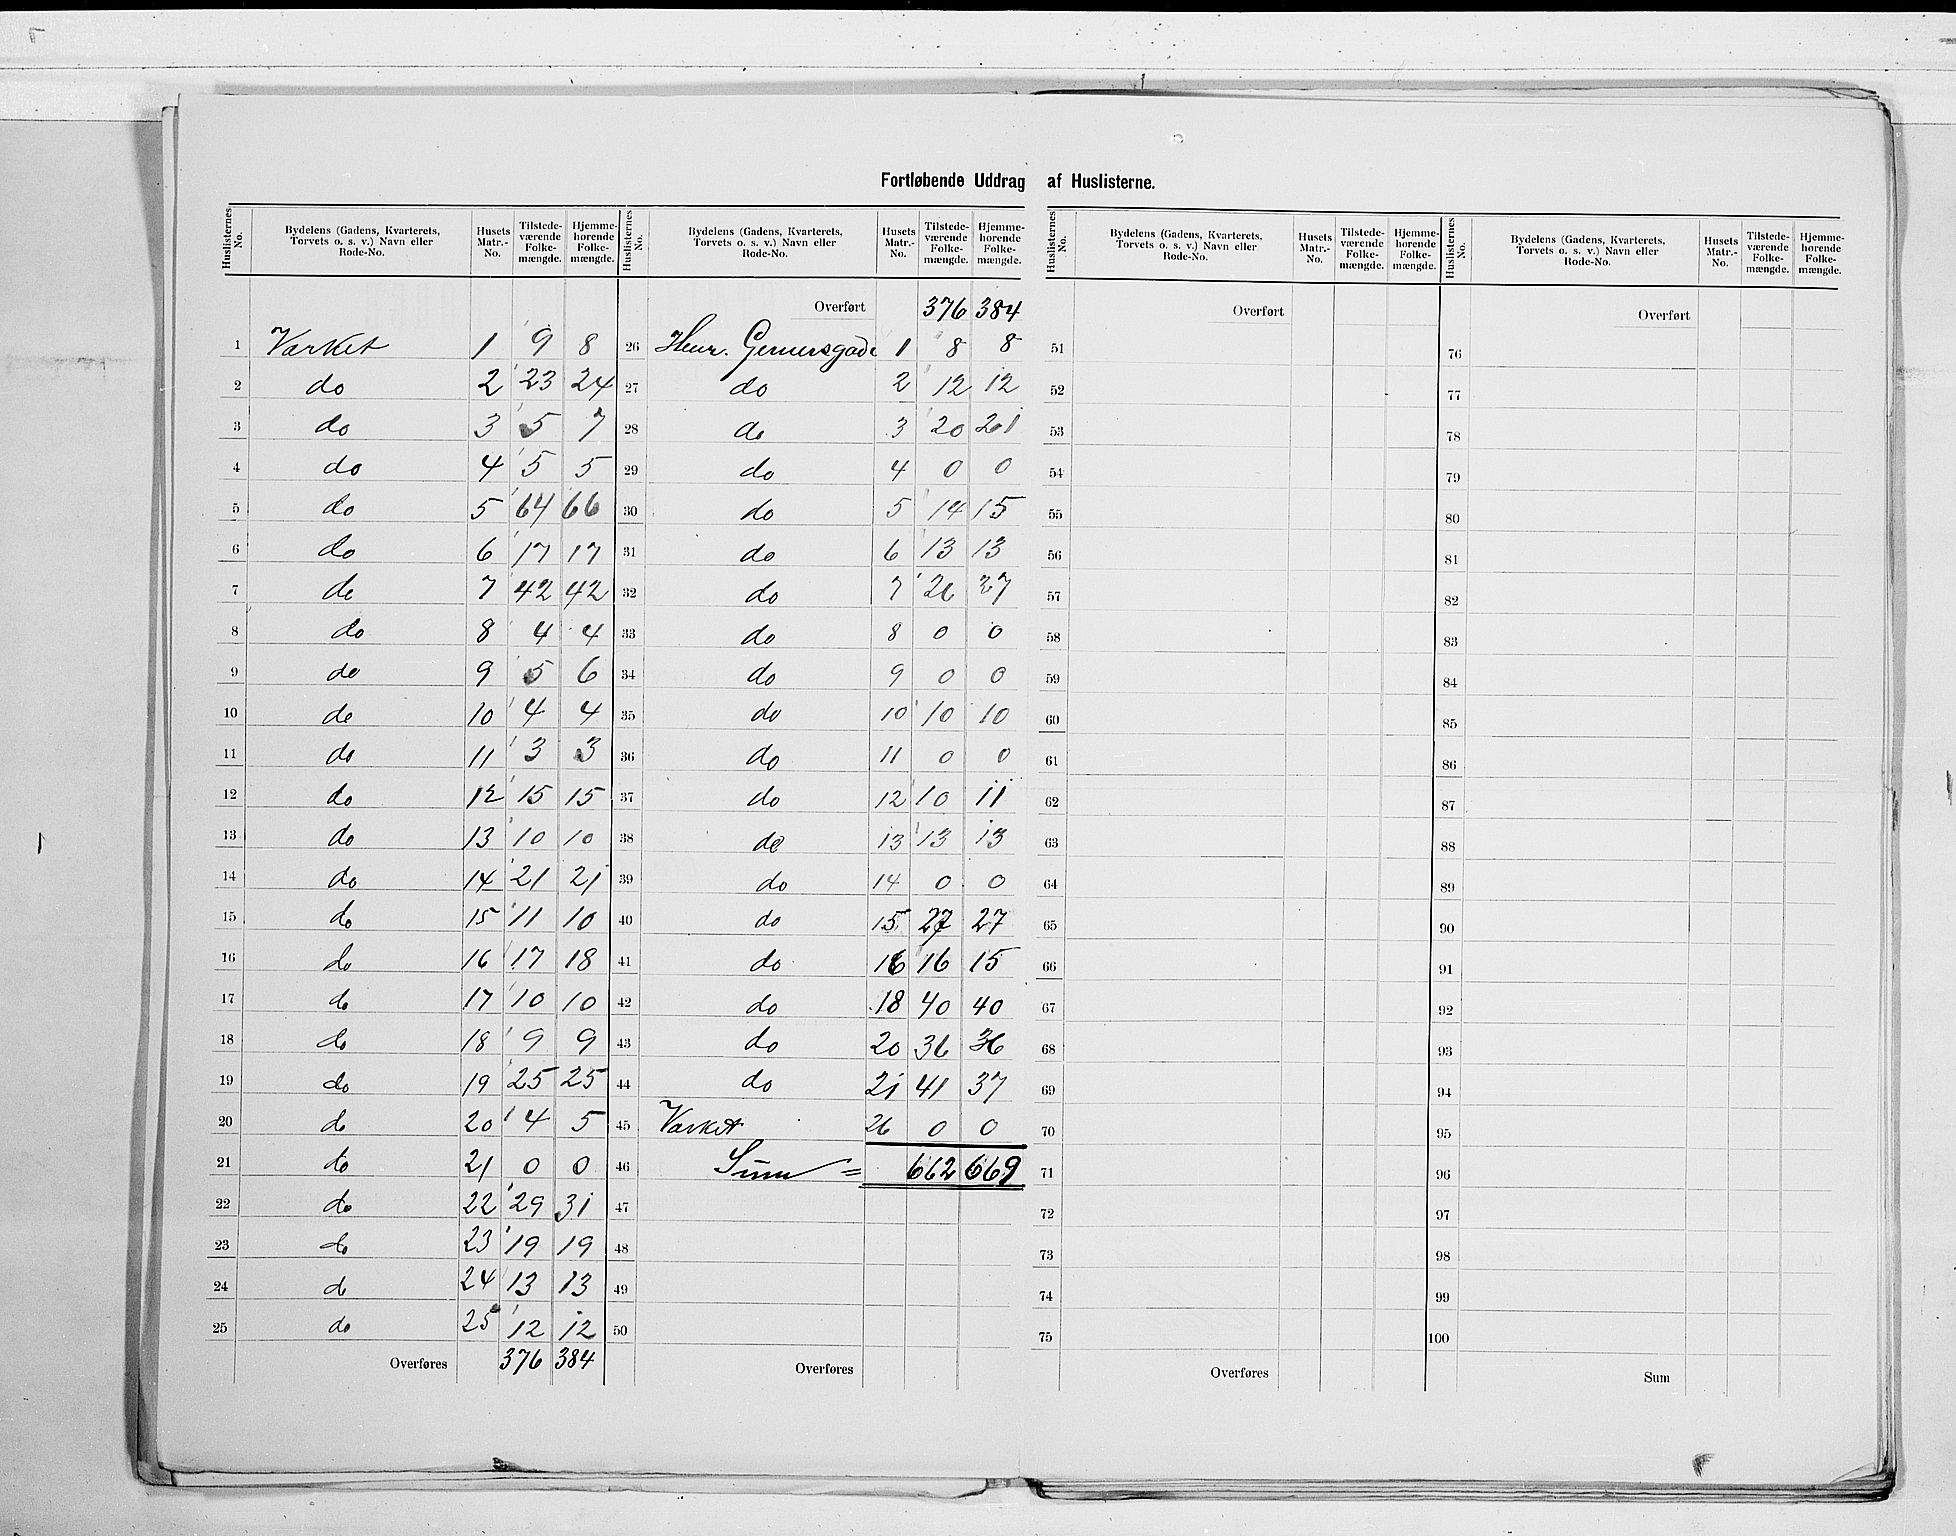 Fortløbende Uddrag af Huslisterne.
Huslisternes No. | Bydelens (Gadens, Kvarterets, Torvets o. s. v.) Navn eller Rode-No. | Husets Matr.-No. | Tilstede-værende Folke-mængde. | Hjemme-hørende Folke-mængde. | Huslisternes No. | Bydelens (Gadens, Kvarterets, Torvets o. s. v.) Navn eller Rode-No. | Husets Matr.-No. | Tilstede-værende Folke-mængde. | Hjemme-hørende Folke-mængde. | Huslisternes No. | Bydelens (Gadens, Kvarterets, Torvets o. s. v.) Navn eller Rode-No. | Husets Matr.-No. | Tilstede-værende Folke-mængde. | Hjemme-hørende Folke-mængde. | Huslisternes No. | Bydelens (Gadens, Kvarterets, Torvets o. s. v.) Navn eller Rode-No. | Husets Matr.-No. | Tilstede-værende Folke-mængde. | Hjemme-hørende Folke-mængde.
Overført 376 384 Overført Overført
1 Værket 1 9 8 26 Henr. Gernersgade 1 8 8 51 76
2 do 2 23 24 27 do 2 12 12 52 77
3 do 3 5 7 28 do 3 20 21 53 78
4 do 4 5 5 29 do 4 0 0 54 79
5 do 5 64 66 30 do 5 14 15 55 80
6 do 6 17 17 31 do 6 13 13 56 81
7 do 7 42 42 32 do 7 26 57 82
8 do 8 4 4 33 do 8 0 0 58 83
9 do 9 5 6 34 do 9 0 0 59 84
10 do 10 4 4 35 do 10 10 10 60 85
11 do 11 3 3 36 do 11 0 0 61 86
12 do 12 15 15 37 do 12 10 11 62 87
13 do 13 10 10 38 do 13 13 13 63 88
14 do 14 21 21 39 do 14 0 0 64 89
15 do 15 11 10 40 do 15 27 27 65 90
16 do 16 17 18 41 do 16 16 15 66 91
17 do 17 10 10 42 do 18 40 40 67 92
18 do 18 9 9 43 do 20 36 36 68 93
19 do 19 25 25 44 do 21 41 37 69 94
20 do 20 4 5 45 Værket 26 0 0 70 95
21 do 21 0 0 46 Sum = 662 669 71 96
22 do 22 29 31 47 72 97
23 do 23 19 19 48 73 98
24 do 24 13 13 49 74 99
25 do 25 12 12 50 75 100
Overføres 376 384 Overføres Overføres Sum